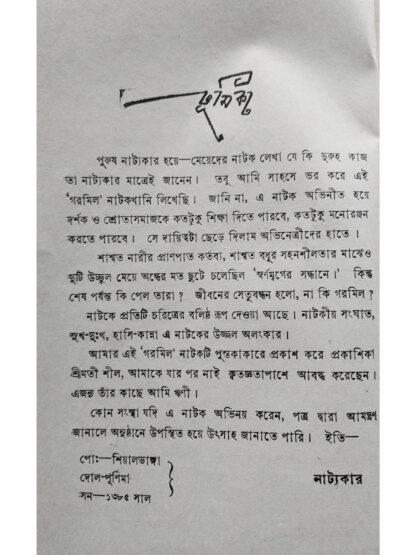 ভূমিকা
পুরুষ নাট্যকার হয়ে—মেয়েদের নাটক লেখা যে কি দুরুহ কাজ
তা নাট্যকার মাত্রেই জানেন। তবু আমি সাহসে ভর করে এই
‘গরমিল’ নাটকখানি লিখেছি। জানি না, এ নাটক অভিনীত হয়ে
দর্শক ও শ্রোতাসমাজকে কতটুকু শিক্ষা দিতে পারবে, কতটুকু মনোরঞ্জন
করতে পারবে। সে দায়িত্বটা ছেড়ে দিলাম অভিনেত্রীদের হাতে।
শাশ্বত নারীর প্রাণপাত কর্তব্য, শাশ্বত বধুর সহনশীলতার মাঝেও
দুটি উচ্ছল মেয়ে অন্ধের মত ছুটে চলেছিল ‘স্বর্ণমৃগের সন্ধানে।’ কিন্তু
শেষ পর্যন্ত কি পেল তারা? জীবনের সেতুবন্ধন হলো, না কি গরমিল?
নাটকে প্রতিটি চরিত্রের বলিষ্ঠ রূপ দেওয়া আছে। নাটকীয় সংঘাত,
সুখ-দুঃখ, হাসি-কান্না এ নাটকের উজ্জল অলংকার।
আমার এই ‘গরমিল’ নাটকটি পুস্তকাকারে প্রকাশ করে প্রকাশিকা
শ্রীমতী শীল, আমাকে যার পর নাই কৃতজ্ঞতাপাশে আবদ্ধ করেছেন।
এজন্য তাঁর কাছে আমি ঋণী।
কোন সংস্থা যদি এ নাটক অভিনয় করেন, পত্র দ্বারা আমন্ত্রণ
জানালে অনুষ্ঠানে উপস্থিত হয়ে উৎসাহ জানাতে পারি। ইতি—
পোঃ—শিয়ালডাঙ্গা
দোল-পূর্ণিমা
সন—১৩৮৫ সাল
নাট্যকার